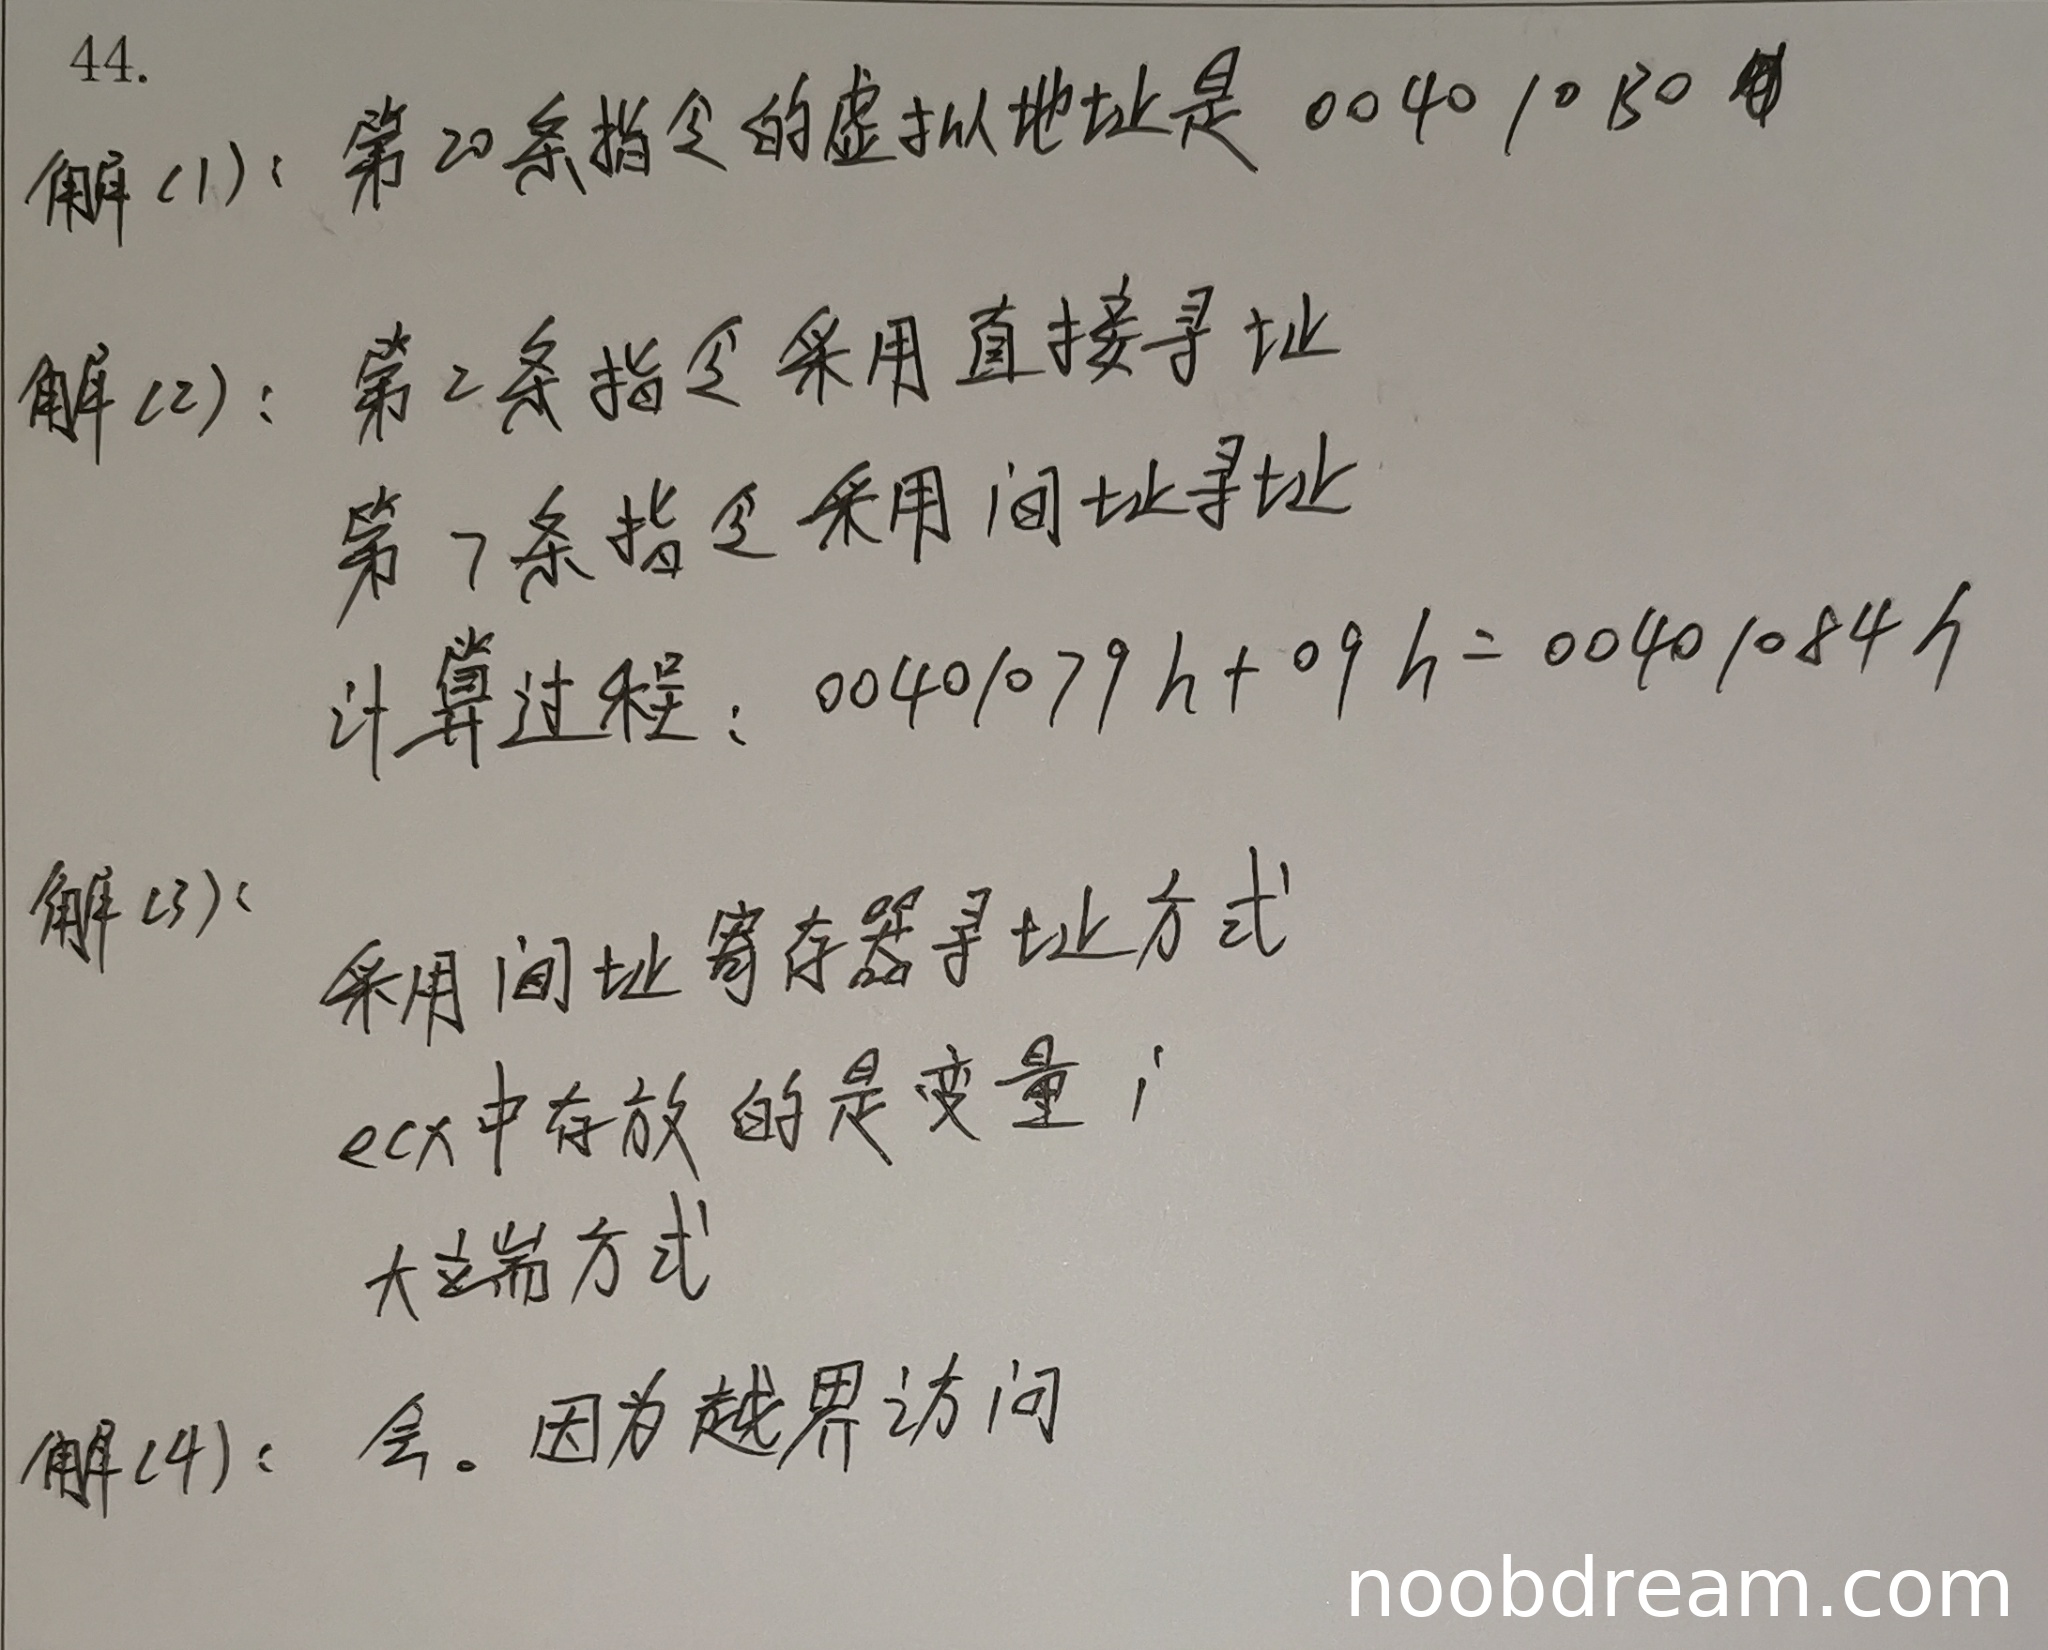 44.
解(1): 第20条指令的虚拟地址是 004010B0
解(2): 第2条指令采用直接寻址
第7条指令采用间址寻址
计算过程: 00401079h+09h=00401084h
解(3):
采用间址寄存器寻址方式
ecx中存放的是变量i
大端方式
解(4): 会。因为越界访问
noobdream.com